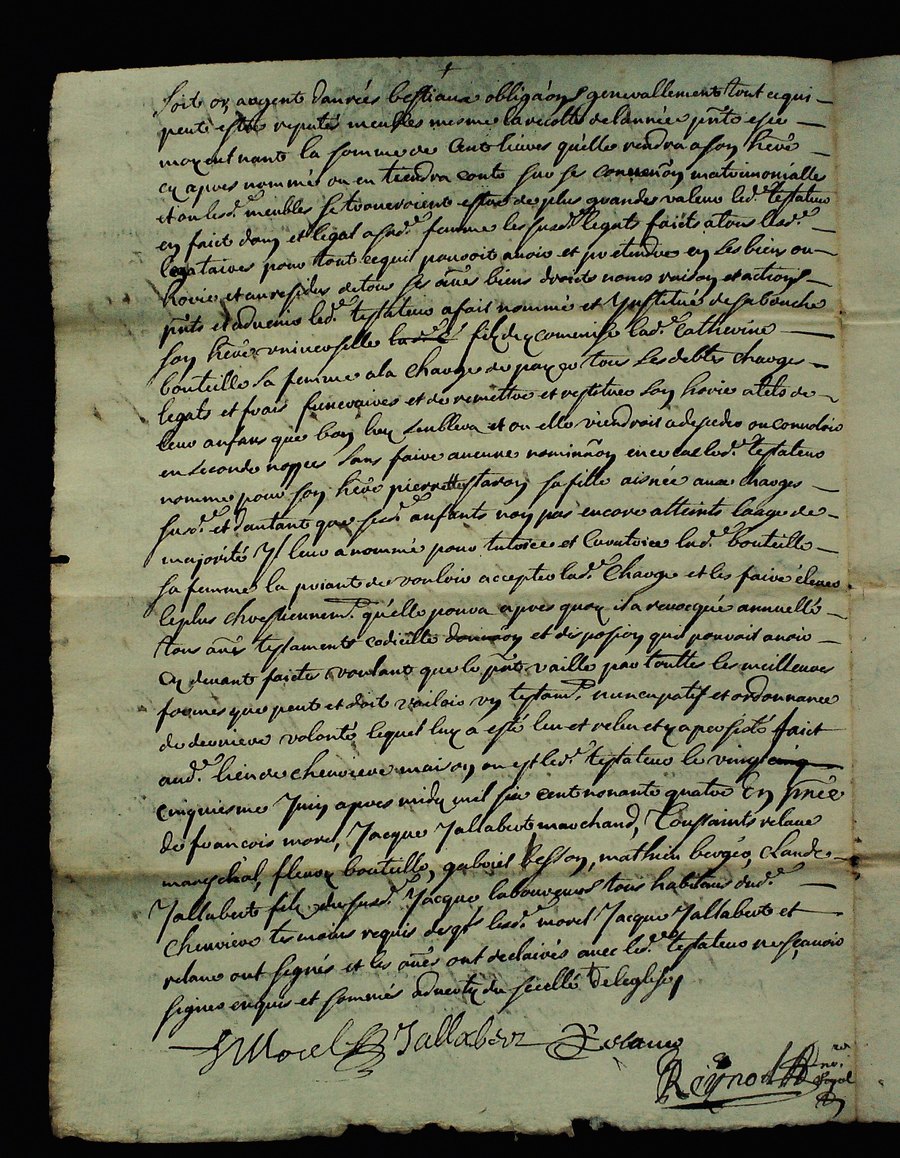 +
soit or argent danrées bestiaux obligaõns generallement tout ce qui
peut estre reputés meubles mesme la recolte de l'année pñte
moyennant la somme de cent livres qu'elle rendra a son hérẽ
cy apres nommé ou en tiendra conte sur ses convenõn matrimonialles
et ou lesd. meubles se trouveroient estre de plus grandes valeur led. testateur
en faict don et legat a sad. femme les susd. legats faicts a tous lesd.
legataires pour tout ce qui pouroit avoir et pretendre en ses biens ou
hoirie et au residus de tous ses aũes biens droits noms raison et actions
pñts et advenir led. testateur a fait nommé et ynstitué de sa bouche
son hérẽ universelle fiz de comenise lad. Catherine
bouteille sa femme a la charges de payer tous ses debtes charges
legats et frais funeraires et de remettre et restituer son hoirie a tels de
leur anfans que bon luy semblera et ou elle viendroit a deseder ou convoler
en seconde nopces sans faire aucune nominãon en ce cas led. testateur
nomme pour son hérẽ pierrette staron sa fille aisnée aux charges
susd. et d'autant que sesd. anfants non pas encore atteints laage de
majorité Il leur a nommé pour tutrice et curatrice lad. bouteille
sa femme la priant de vouloir accepter lad. charge et les faire élever
le plus chrestiennem. qu'elle poura apres quoy il a revocqué annullé
tous aũes testaments codicille donnãon et disposion qui pouroit avoir
cy devant faictes voulant que le pñt vaille par touttes les meilleures
formes que peut et doit valloir un testam. nuncupatif et ordonnance
de derniere volonté lequel luy a esté leu et releu et y a persisté faict
aud. lieu de chenviere maison ou est led. testateur le vingt cinq
cinquiesme Juin apres midy mil six cent nonante quatre en pñce
de francois morel, Jacque Jallabert marchand, Toussaints relave
mareschal, fleury bouteille, gabriel besson, mathieu berger, claude
Jallabert filz dususd. Jacque laboureurs tous habitans dud.
chenviere tesmoins requis desqls lesd. morel Jacque Jallabert et
relave ont signés et les aũes ont declairés avec led. testateur ne sçavoir
signer enquis et sommés adverty du scellé de leglise
f Morel Jallabert T relaue
Reynod
no. Royal